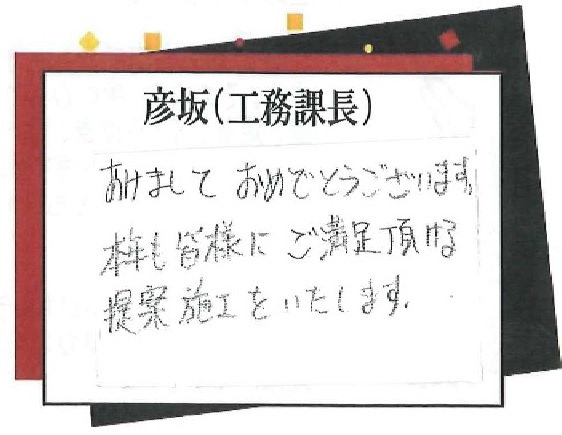 彦坂（工務課長）
あけまして おめでとうございます。
本年も皆様に ご満足頂ける
提案施工をいたします。